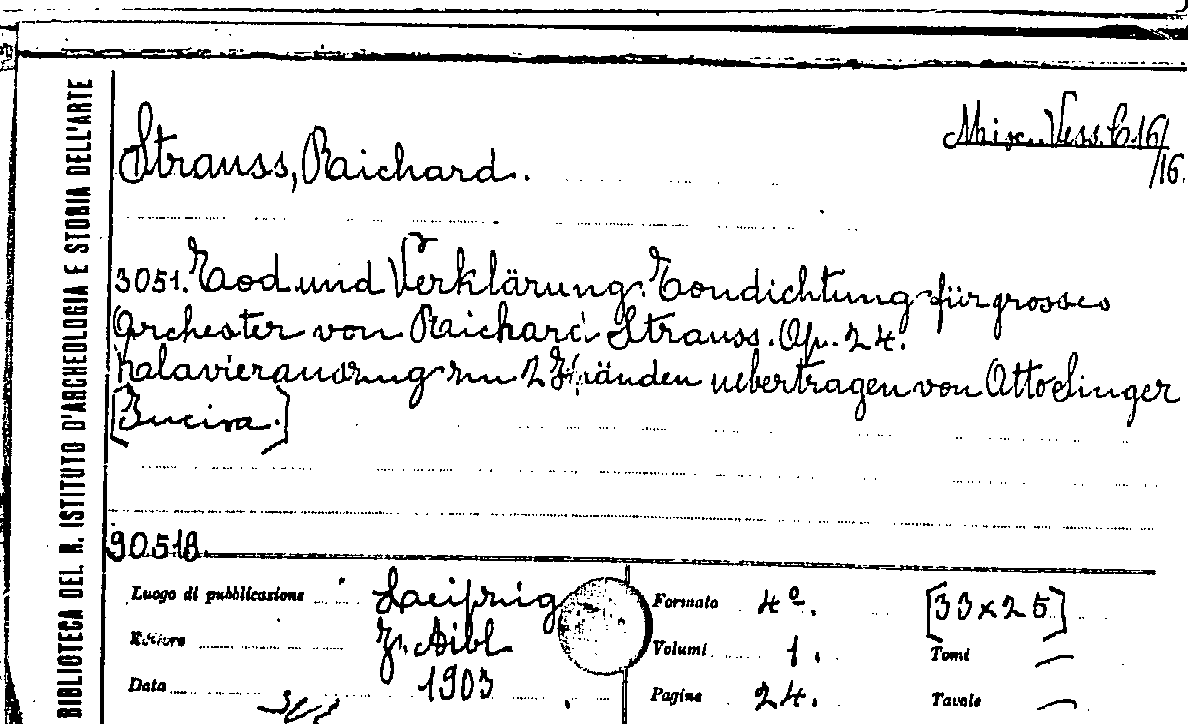 BIBLIOTECA DEL R. ISTITUTO D'ARCHEOLOGIA E STORIA DELL'ARTE
Misc. Vess. C. 16/
/16.
Strauss, Raichard.
3051. Tod und Verklärung. Tondichtung für grosses
Orchester von Raichard Strauss. Op. 24.
Kalavierauszug zu 2 Händen uebertragen von Otto Singer
90518
Luogo di pubblicazione Laeipzig Formato 4º. [33x25]
Editore J. Aibl Volumi 1. Tomi —
Data 1903 Pagine 24. Tavole —